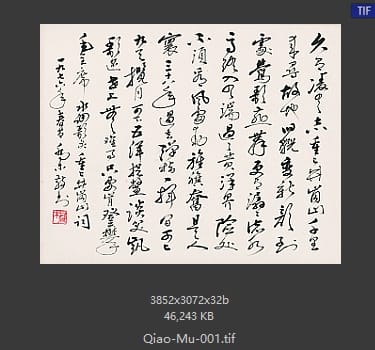 久有凌云志重上井岗山千里
来寻故地旧貌变新颜到
处莺歌燕舞更有潺潺流水
高路入云端过了黄洋界险处
不须看风雷动旌旗奋是人
寰三十八年过去弹指一挥间可上
九天揽月可下五洋捉鳖谈笑凯
歌还世上无难事只要肯登攀
毛主席水调歌头重上井岗山词
一九七六年春节
TIF
3852x3072x32b
46,243 KB
Qiao-Mu-001.tif